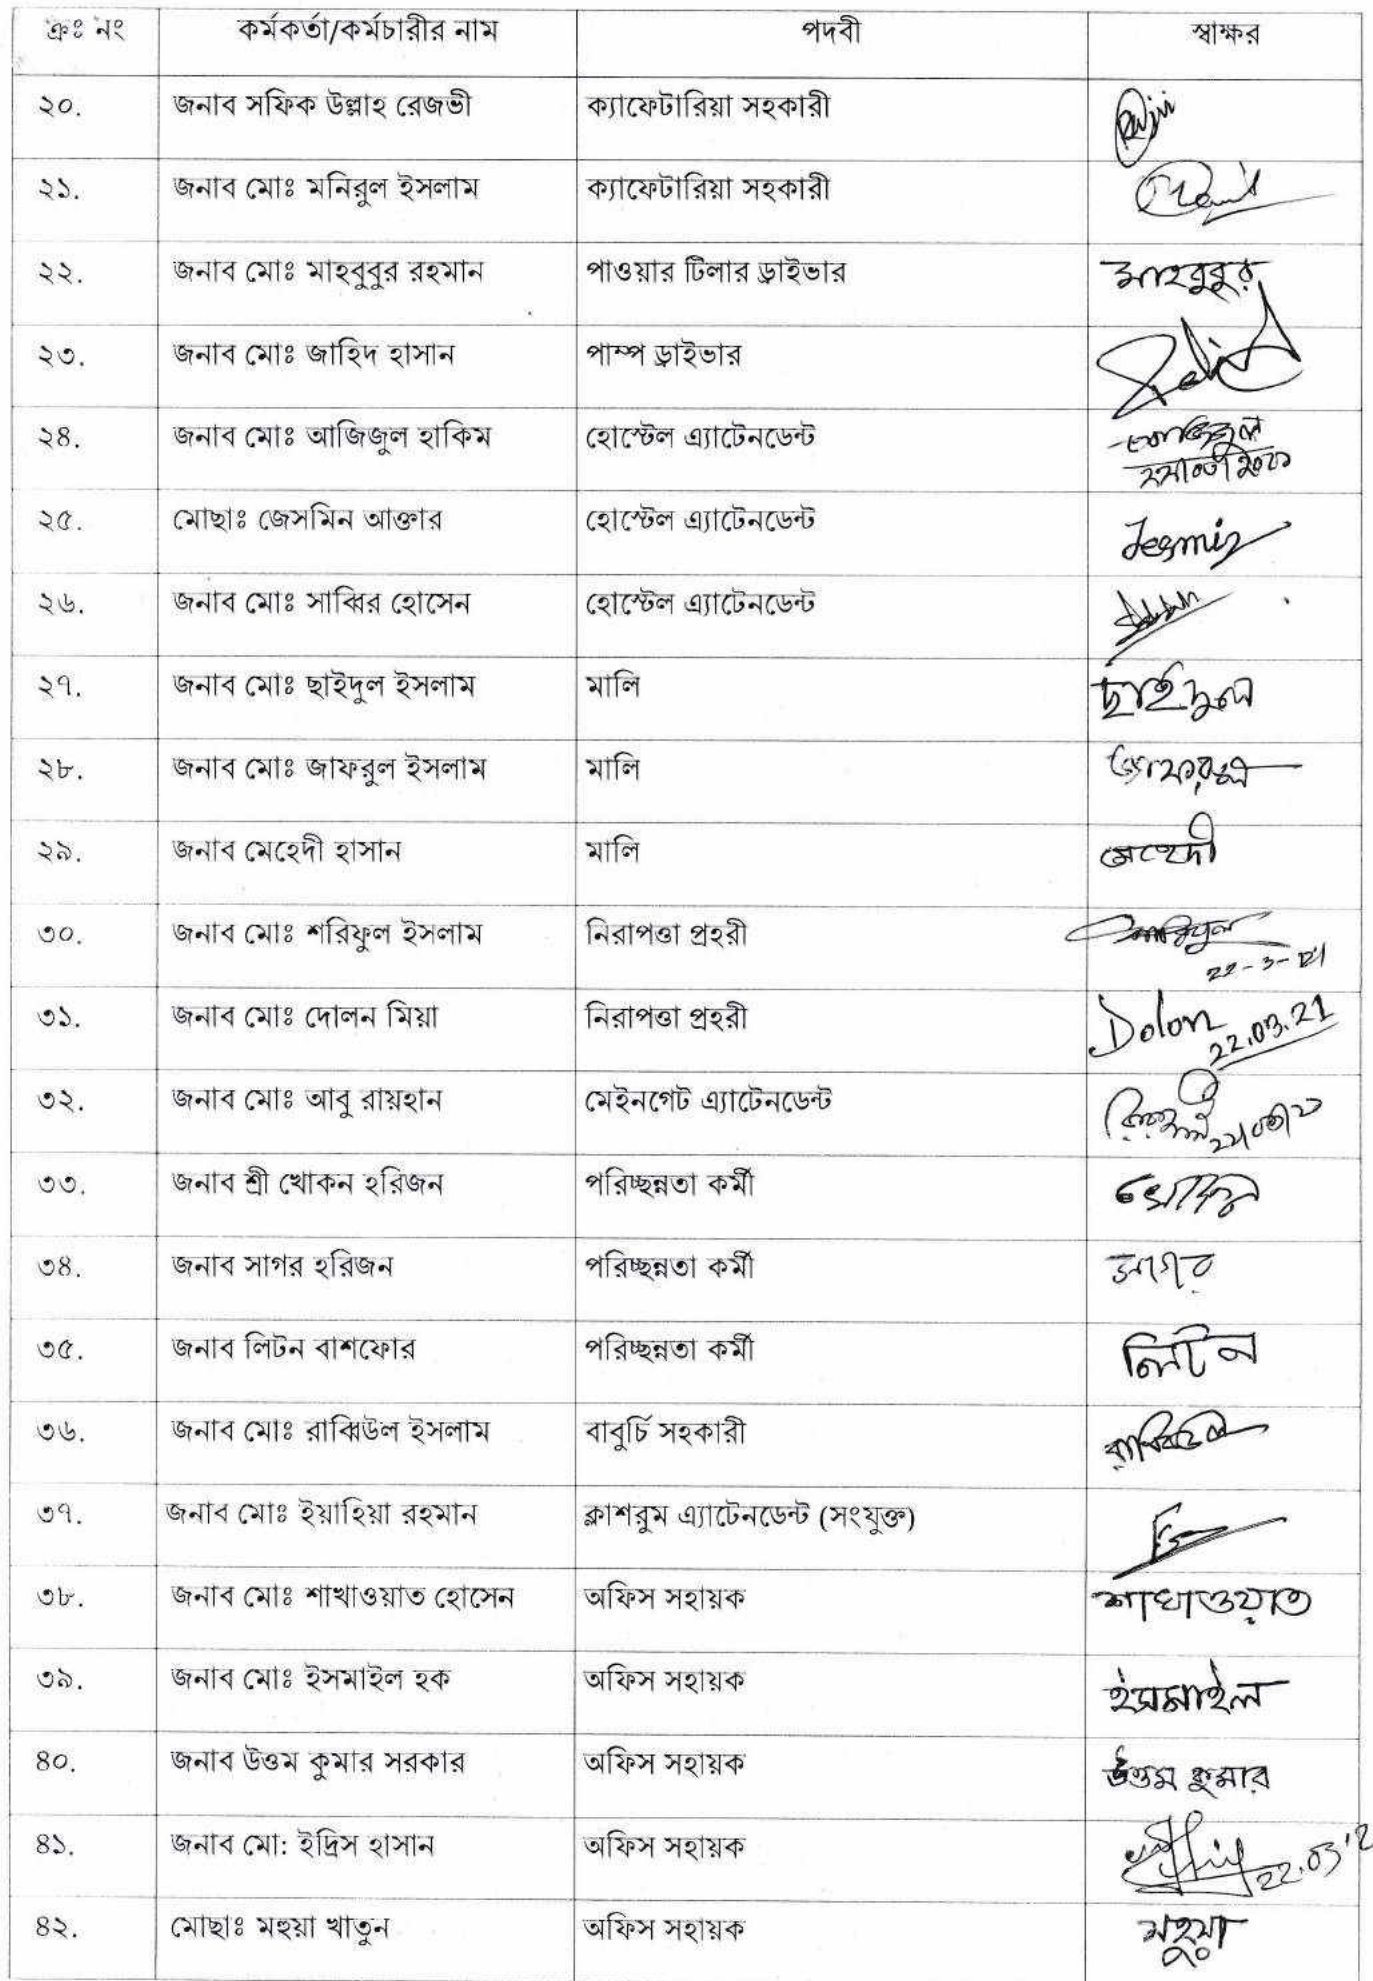 ক্রঃ নং কর্মকর্তা/কর্মচারীর নাম পদবী স্বাক্ষর
২০. জনাব সফিক উল্লাহ রেজভী ক্যাফেটারিয়া সহকারী
২১. জনাব মোঃ মনিরুল ইসলাম ক্যাফেটারিয়া সহকারী
২২. জনাব মোঃ মাহবুবুর রহমান পাওয়ার টিলার ড্রাইভার মাহবুবুর
২৩. জনাব মোঃ জাহিদ হাসান পাম্প ড্রাইভার
২৪. জনাব মোঃ আজিজুল হাকিম হোস্টেল এ্যাটেনডেন্ট
২৫. মোছাঃ জেসমিন আক্তার হোস্টেল এ্যাটেনডেন্ট Jesmin
২৬. জনাব মোঃ সাব্বির হোসেন হোস্টেল এ্যাটেনডেন্ট
২৭. জনাব মোঃ ছাইদুল ইসলাম মালি ছাইদুল
২৮. জনাব মোঃ জাফরুল ইসলাম মালি জাফরুল
২৯. জনাব মেহেদী হাসান মালি মেহেদী
৩০. জনাব মোঃ শরিফুল ইসলাম নিরাপত্তা প্রহরী শরিফুল
22-3-21
৩১. জনাব মোঃ দোলন মিয়া নিরাপত্তা প্রহরী Dolon
22.03.21
৩২. জনাব মোঃ আবু রায়হান মেইনগেট এ্যাটেনডেন্ট
৩৩. জনাব শ্রী খোকন হরিজন পরিচ্ছন্নতা কর্মী খোকন
৩৪. জনাব সাগর হরিজন পরিচ্ছন্নতা কর্মী সাগর
৩৫. জনাব লিটন বাশফোর পরিচ্ছন্নতা কর্মী লিটন
৩৬. জনাব মোঃ রাব্বিউল ইসলাম বাবুর্চি সহকারী
৩৭. জনাব মোঃ ইয়াহিয়া রহমান ক্লাশরুম এ্যাটেনডেন্ট (সংযুক্ত)
৩৮. জনাব মোঃ শাখাওয়াত হোসেন অফিস সহায়ক শাখাওয়াত
৩৯. জনাব মোঃ ইসমাইল হক অফিস সহায়ক ইসমাইল
৪০. জনাব উত্তম কুমার সরকার অফিস সহায়ক উত্তম কুমার
৪১. জনাব মো: ইদ্রিস হাসান অফিস সহায়ক
৪২. মোছাঃ মহুয়া খাতুন অফিস সহায়ক মহুয়া